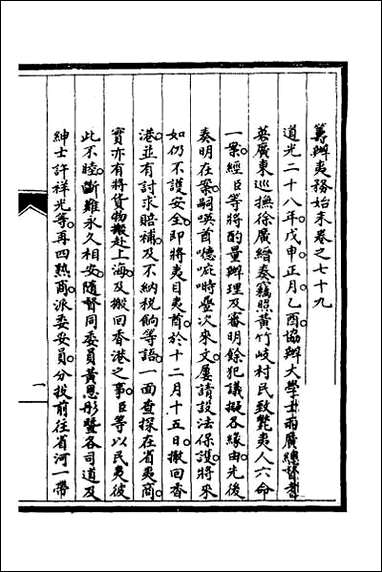 籌辦夷務始末卷之七十九
道光二十八年戊申正月乙酉協辦大學士兩廣總督耆
英廣東巡撫徐廣縉奏竊照黃竹岐村民致斃夷人六命
一案經臣等將酌量辦理及審明餘犯議擬各緣由先後
奏明在案嗣㗂酋嘚庇時疊次來文屢請設法保護將來
如仍不護安全即將夷目夷酋於十二月十五日撤回香
港並有討求賠補及不納稅餉等語一面查探在省夷商
實亦有將貨物搬赴上海及搬回香港之事臣等以民夷彼
此不睦斷難永久相安隨督同委員黃恩彤暨各司道及
紳士許祥光等再四熟商派委妥員分投前往省河一帶
一